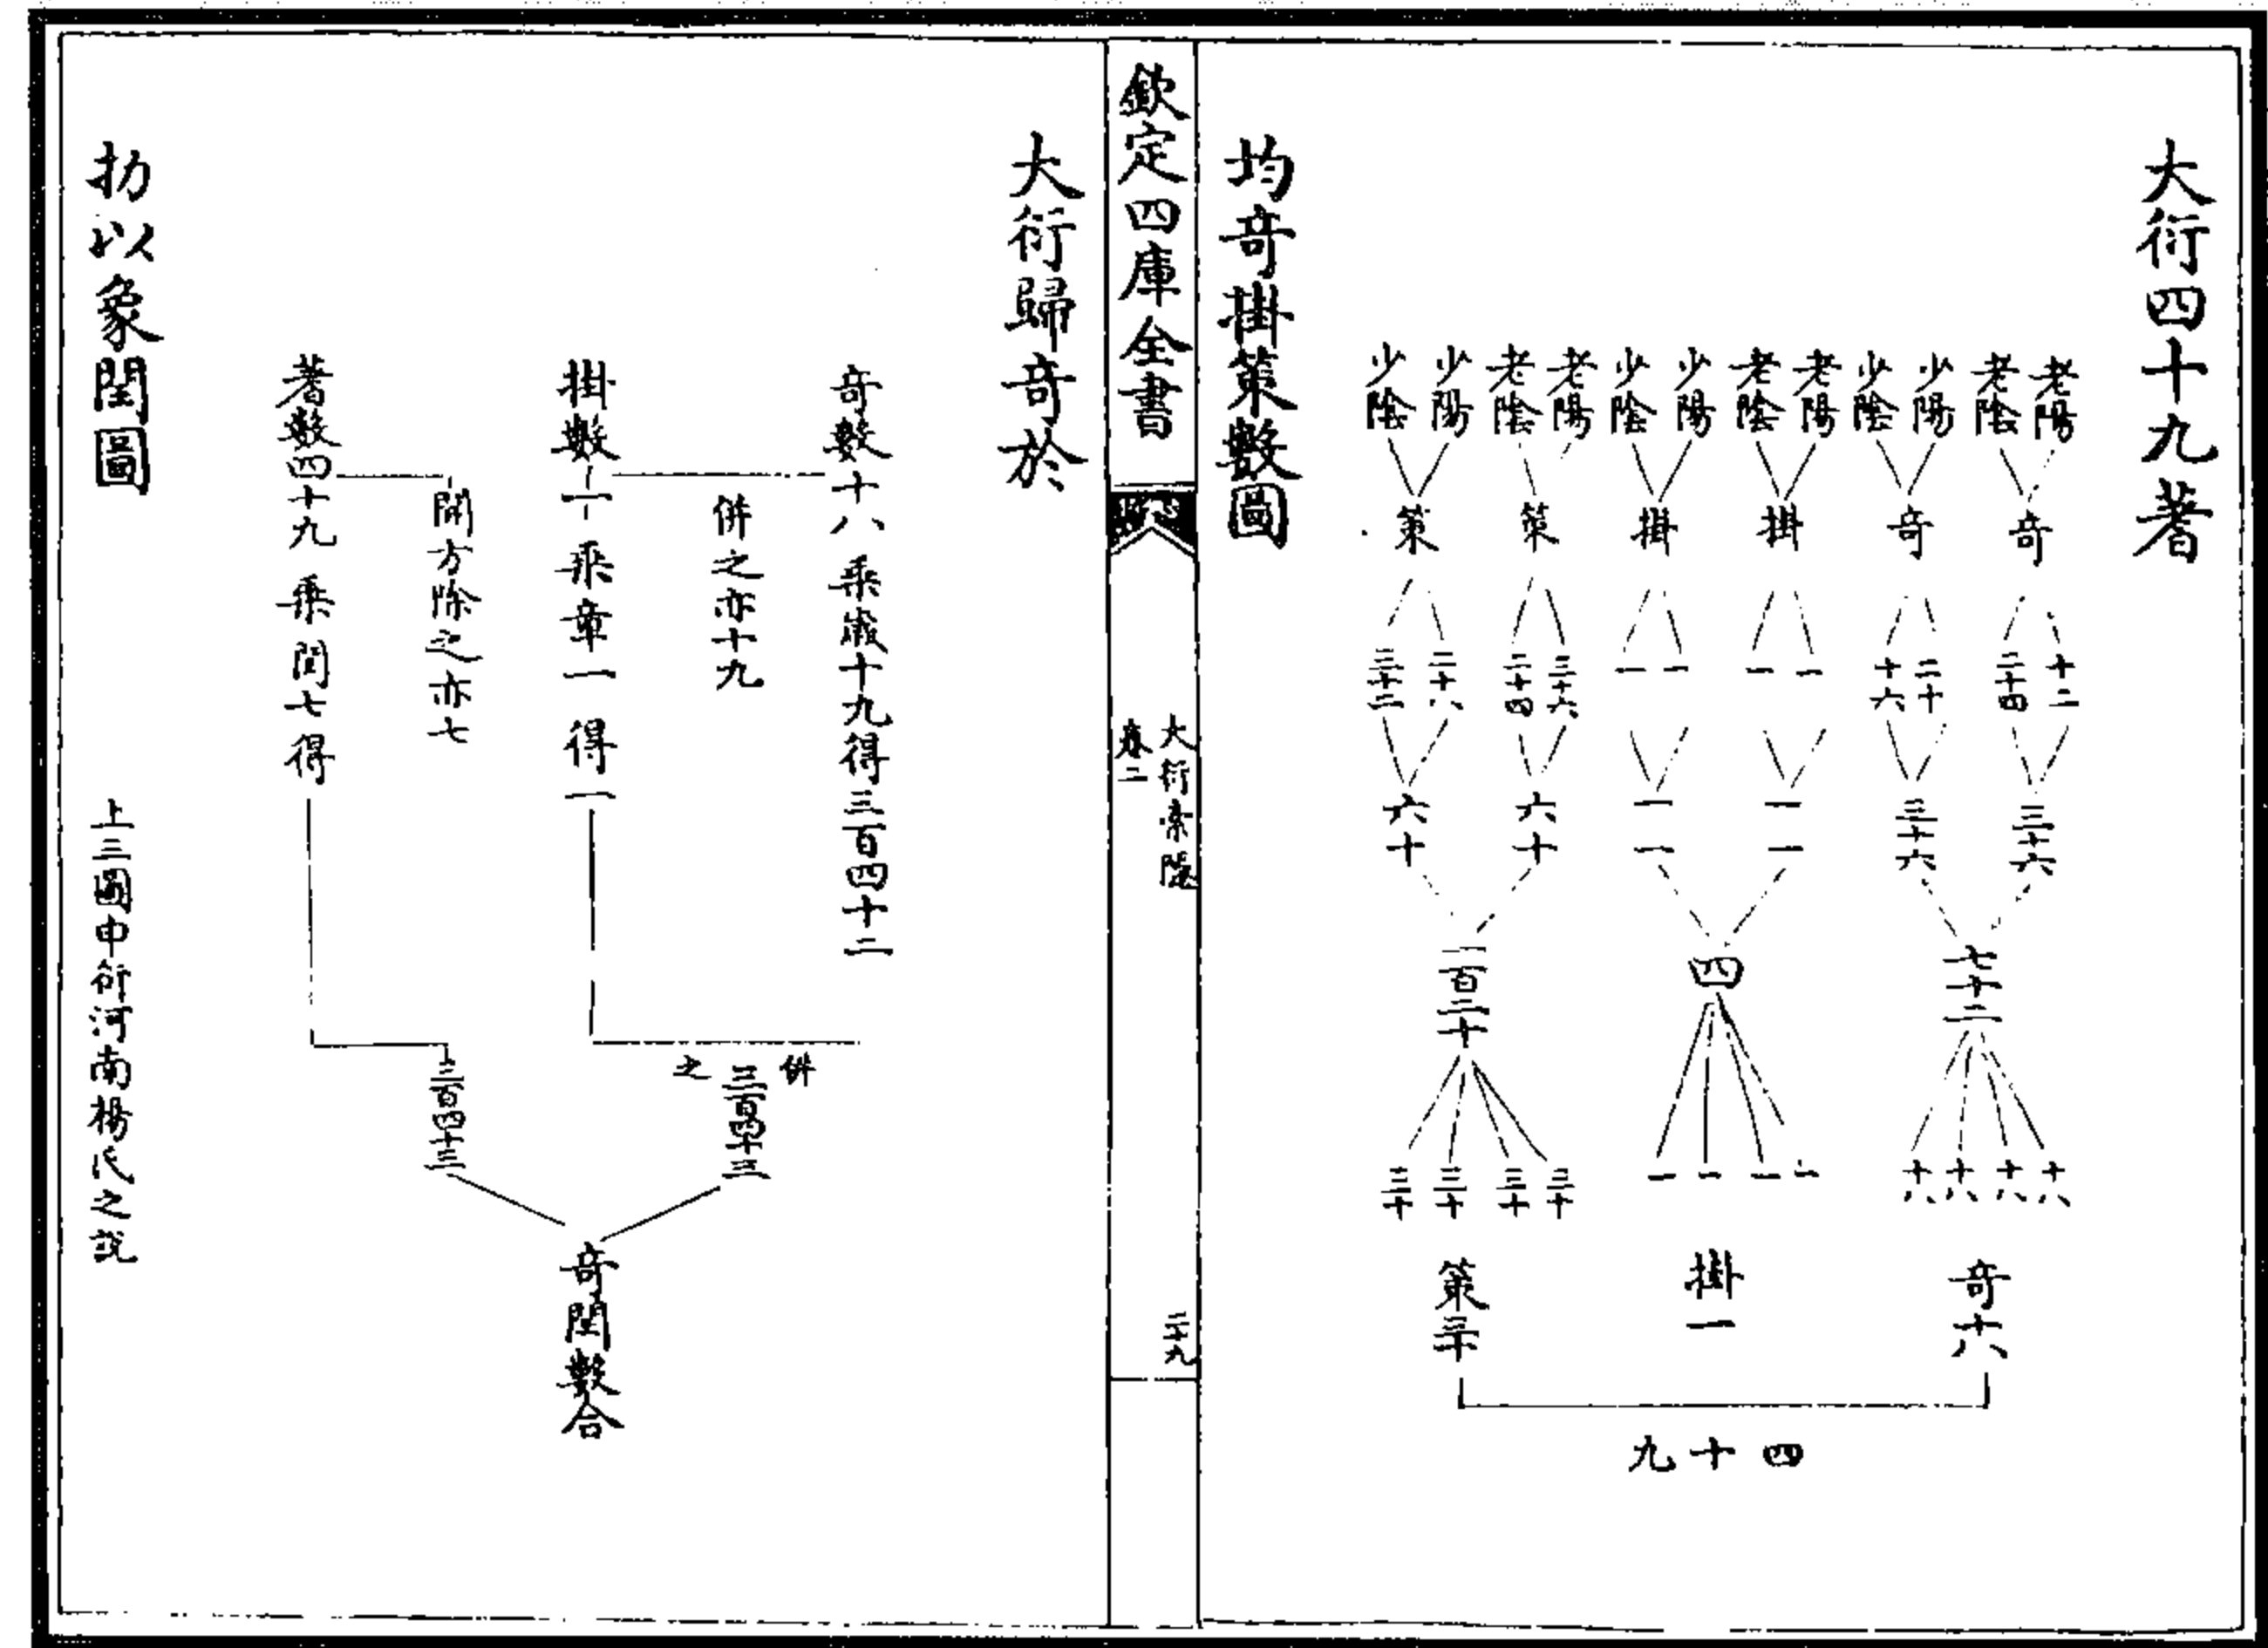 大衍四十九蓍
老陽 老陰 少陽 少陰 老陽 老陰 少陽 少陰 老陽 老陰 少陽 少陰
奇 奇 掛 掛 策 策
十二 二十四 二十 十六 一 一 一 一 三十六 二十四 二十八 三十二
三十六 三十六 一一 一一 六十 六十
七十二 四 一百二十
十八 十八 十八 十八 一 一 一 一 三十 三十 三十 三十
奇十八 掛一 策三十
四十九
均奇掛策數圖
欽定四庫全書
大衍索隱
卷二
三十九
大衍歸奇於
奇數十八 乘歲十九得三百四十二
併之亦十九
掛數一 乘章一得一
併之
三百四十三
開方除之亦七
蓍數四十九 乘閏七得
三百四十三
奇閏數合
扐以象閏圖
上三圖申衍河南楊氏之說